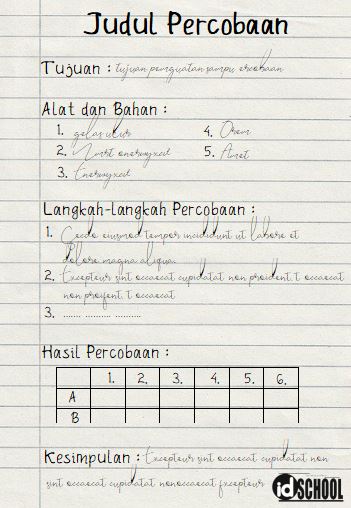 Judul Percobaan
Tujuan : tujuan pengujian sampu ercobaan
Alat dan Bahan :
1. gelas ukur
2.
3.
4.
5. Amet
Langkah-langkah Percobaan :
1. eiusmod tempor incididunt ut labore et
dollore magna aliqua.
2. Excepteur sint occaecat cupidatat non proident, t occaecat
non proifent, t occaecat
3. ...... ......... .........
Hasil Percobaan :
1. 2. 3. 4. 5. 6.
A
B
Kesimpulan : Excepteur sint occaecat cupidatat non
sint occaecat cupidatat nonoccaecat fxcepteur
idSCHOOL